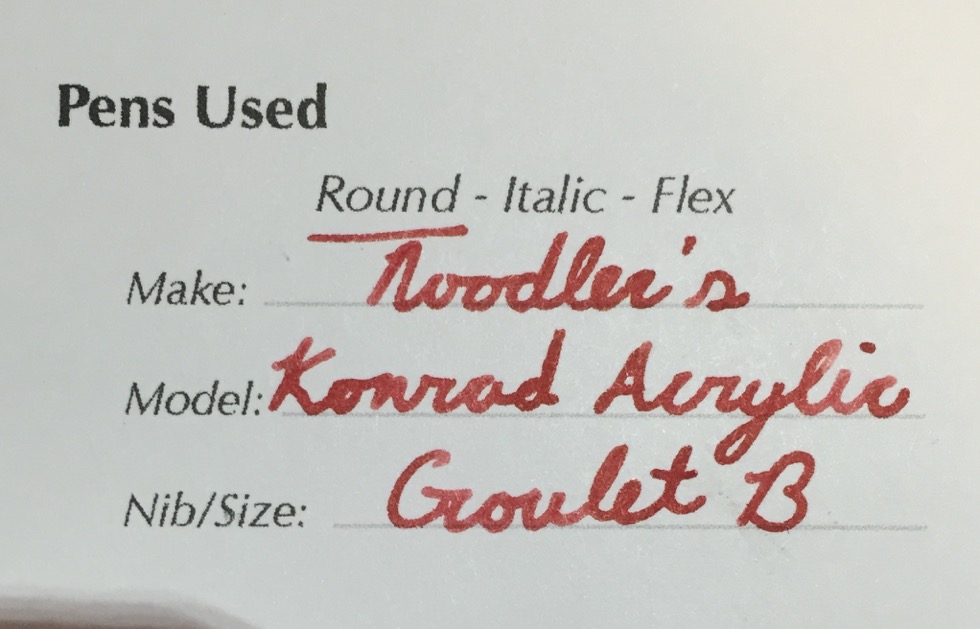 Pens Used
Round - Italic - Flex
Make: Noodler's
Model: Konrad Acrylic
Nib/Size: Goulet B